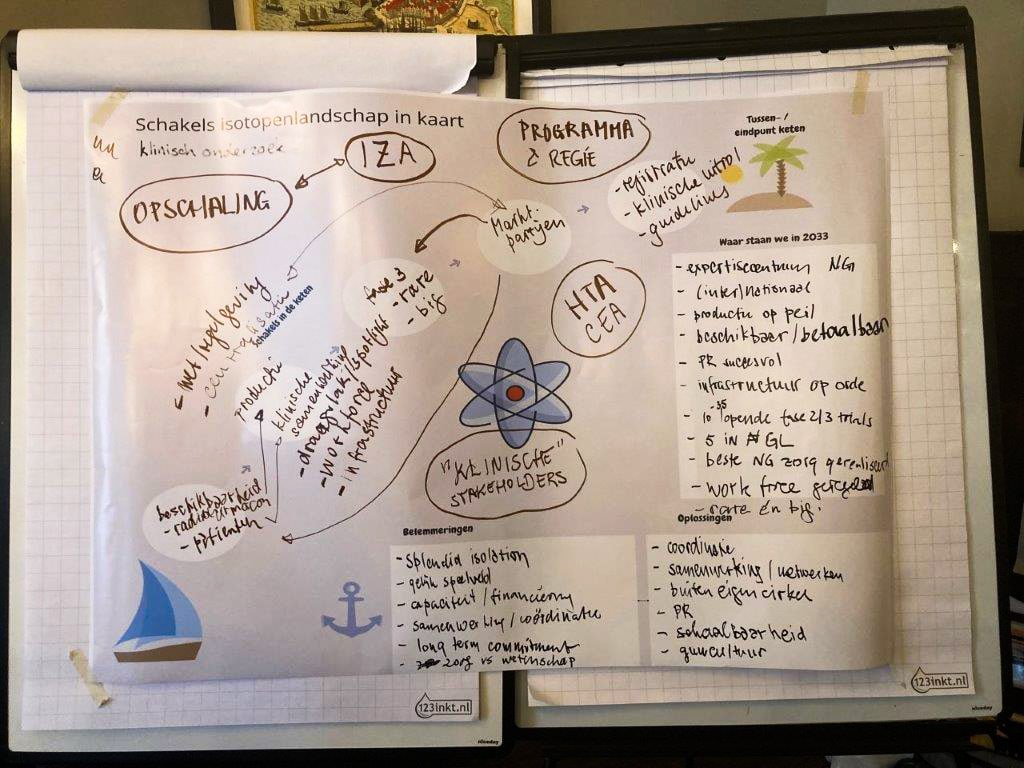 Schakels isotopenlandschap in kaart
klinisch onderzoek
IZA
OPSCHALING
PROGRAMMA
REGIE
Tussen- /
eindpunt keten
- registratie
- klinische uitrol
- guidelines
Markt-
partijen
fase 3
- rare
- big
HTA
CEA
- wet/regelgeving
- centralisatie
Schakels in de keten
productie
klinische
samenwerking
- draagvlak/spotlight
- workforce
- infrastructuur
beschikbaarheid
- radiofarmacon
- patienten
"KLINISCHE"
STAKEHOLDERS
Waar staan we in 2033
- expertisecentrum NG
- (inter)nationaal
- productie op peil
- beschikbaar/betaalbaar
- PR succesvol
- infrastructuur op orde
- 10 -35 lopende fase 2/3 trials
- 5 in GL
- beste NG zorg gerealiseerd
- work free geregeld
- rare én big.
Belemmeringen
- Splendid isolation
- gelijk speelveld
- capaciteit / financiering
- samenwerking / coördinatie
- long term commitment
- zorg vs wetenschap
Oplossingen
- coordinatie
- samenwerking / netwerken
- buiten eigen cirkel
- PR
- schaalbaarheid
- cultuur
123inkt.nl
123inkt.nl